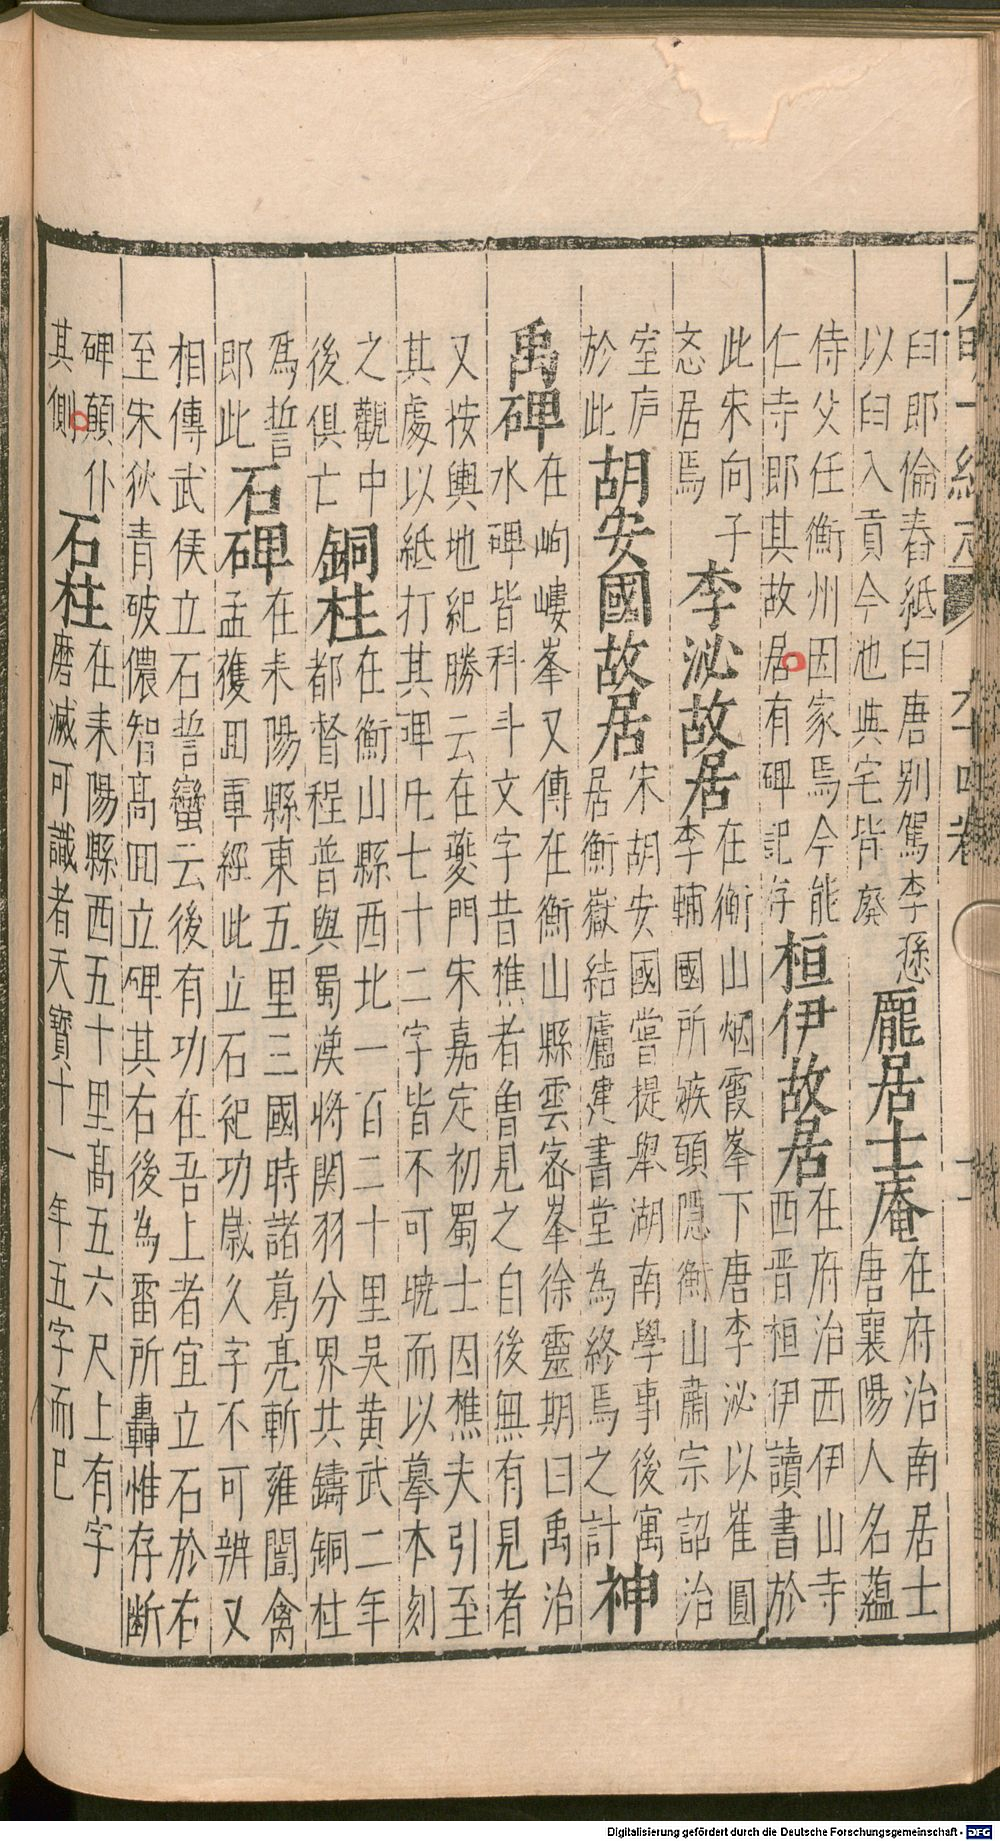 大明一統志 六十四卷 十一
臼即倫舂紙臼唐別駕李遜
以臼入貢今池與宅皆廢
龐居士庵
在府治南居士
唐襄陽人名蘊
侍父任衡州因家焉今能
仁寺即其故居有碑記存
桓伊故居
在府治西伊山寺
西晉桓伊讀書於
此宋向子
忞居焉
李泌故居
在衡山烟霞峯下唐李泌以崔圓
李輔國所嫉頭隱衡山肅宗詔治
室庐
於此
胡安國故居
宋胡安國嘗提舉湖南學事後寓
居衡嶽結廬建書堂為終焉之計
神
禹碑
在岣嶁峯又傳在衡山縣雲密峯徐靈期曰禹治
水碑皆科斗文字昔樵者曾見之自後無有見者
又按輿地紀勝云在夔門宋嘉定初蜀士因樵夫引至
其處以紙打其碑凡七十二字皆不可曉而以摹本刻
之觀中
後俱亡
銅柱
在衡山縣西北一百二十里吳黃武二年
都督程普與蜀漢將関羽分界共鑄銅柱
爲誓
即此
石碑
在耒陽縣東五里三國時諸葛亮斬雍闓禽
孟獲囬軍經此立石紀功歲久字不可辨又
相傳武侯立石誓蠻云後有功在吾上者宜立石於右
至宋狄青破儂智高囬立碑其右後為雷所轟惟存斷
碑顛仆
其側
石柱
在耒陽縣西五十里高五六尺上有字
磨滅可識者天寶十一年五字而已
Digitalisierung gefördert durch die Deutsche Forschungsgemeinschaft - DFG